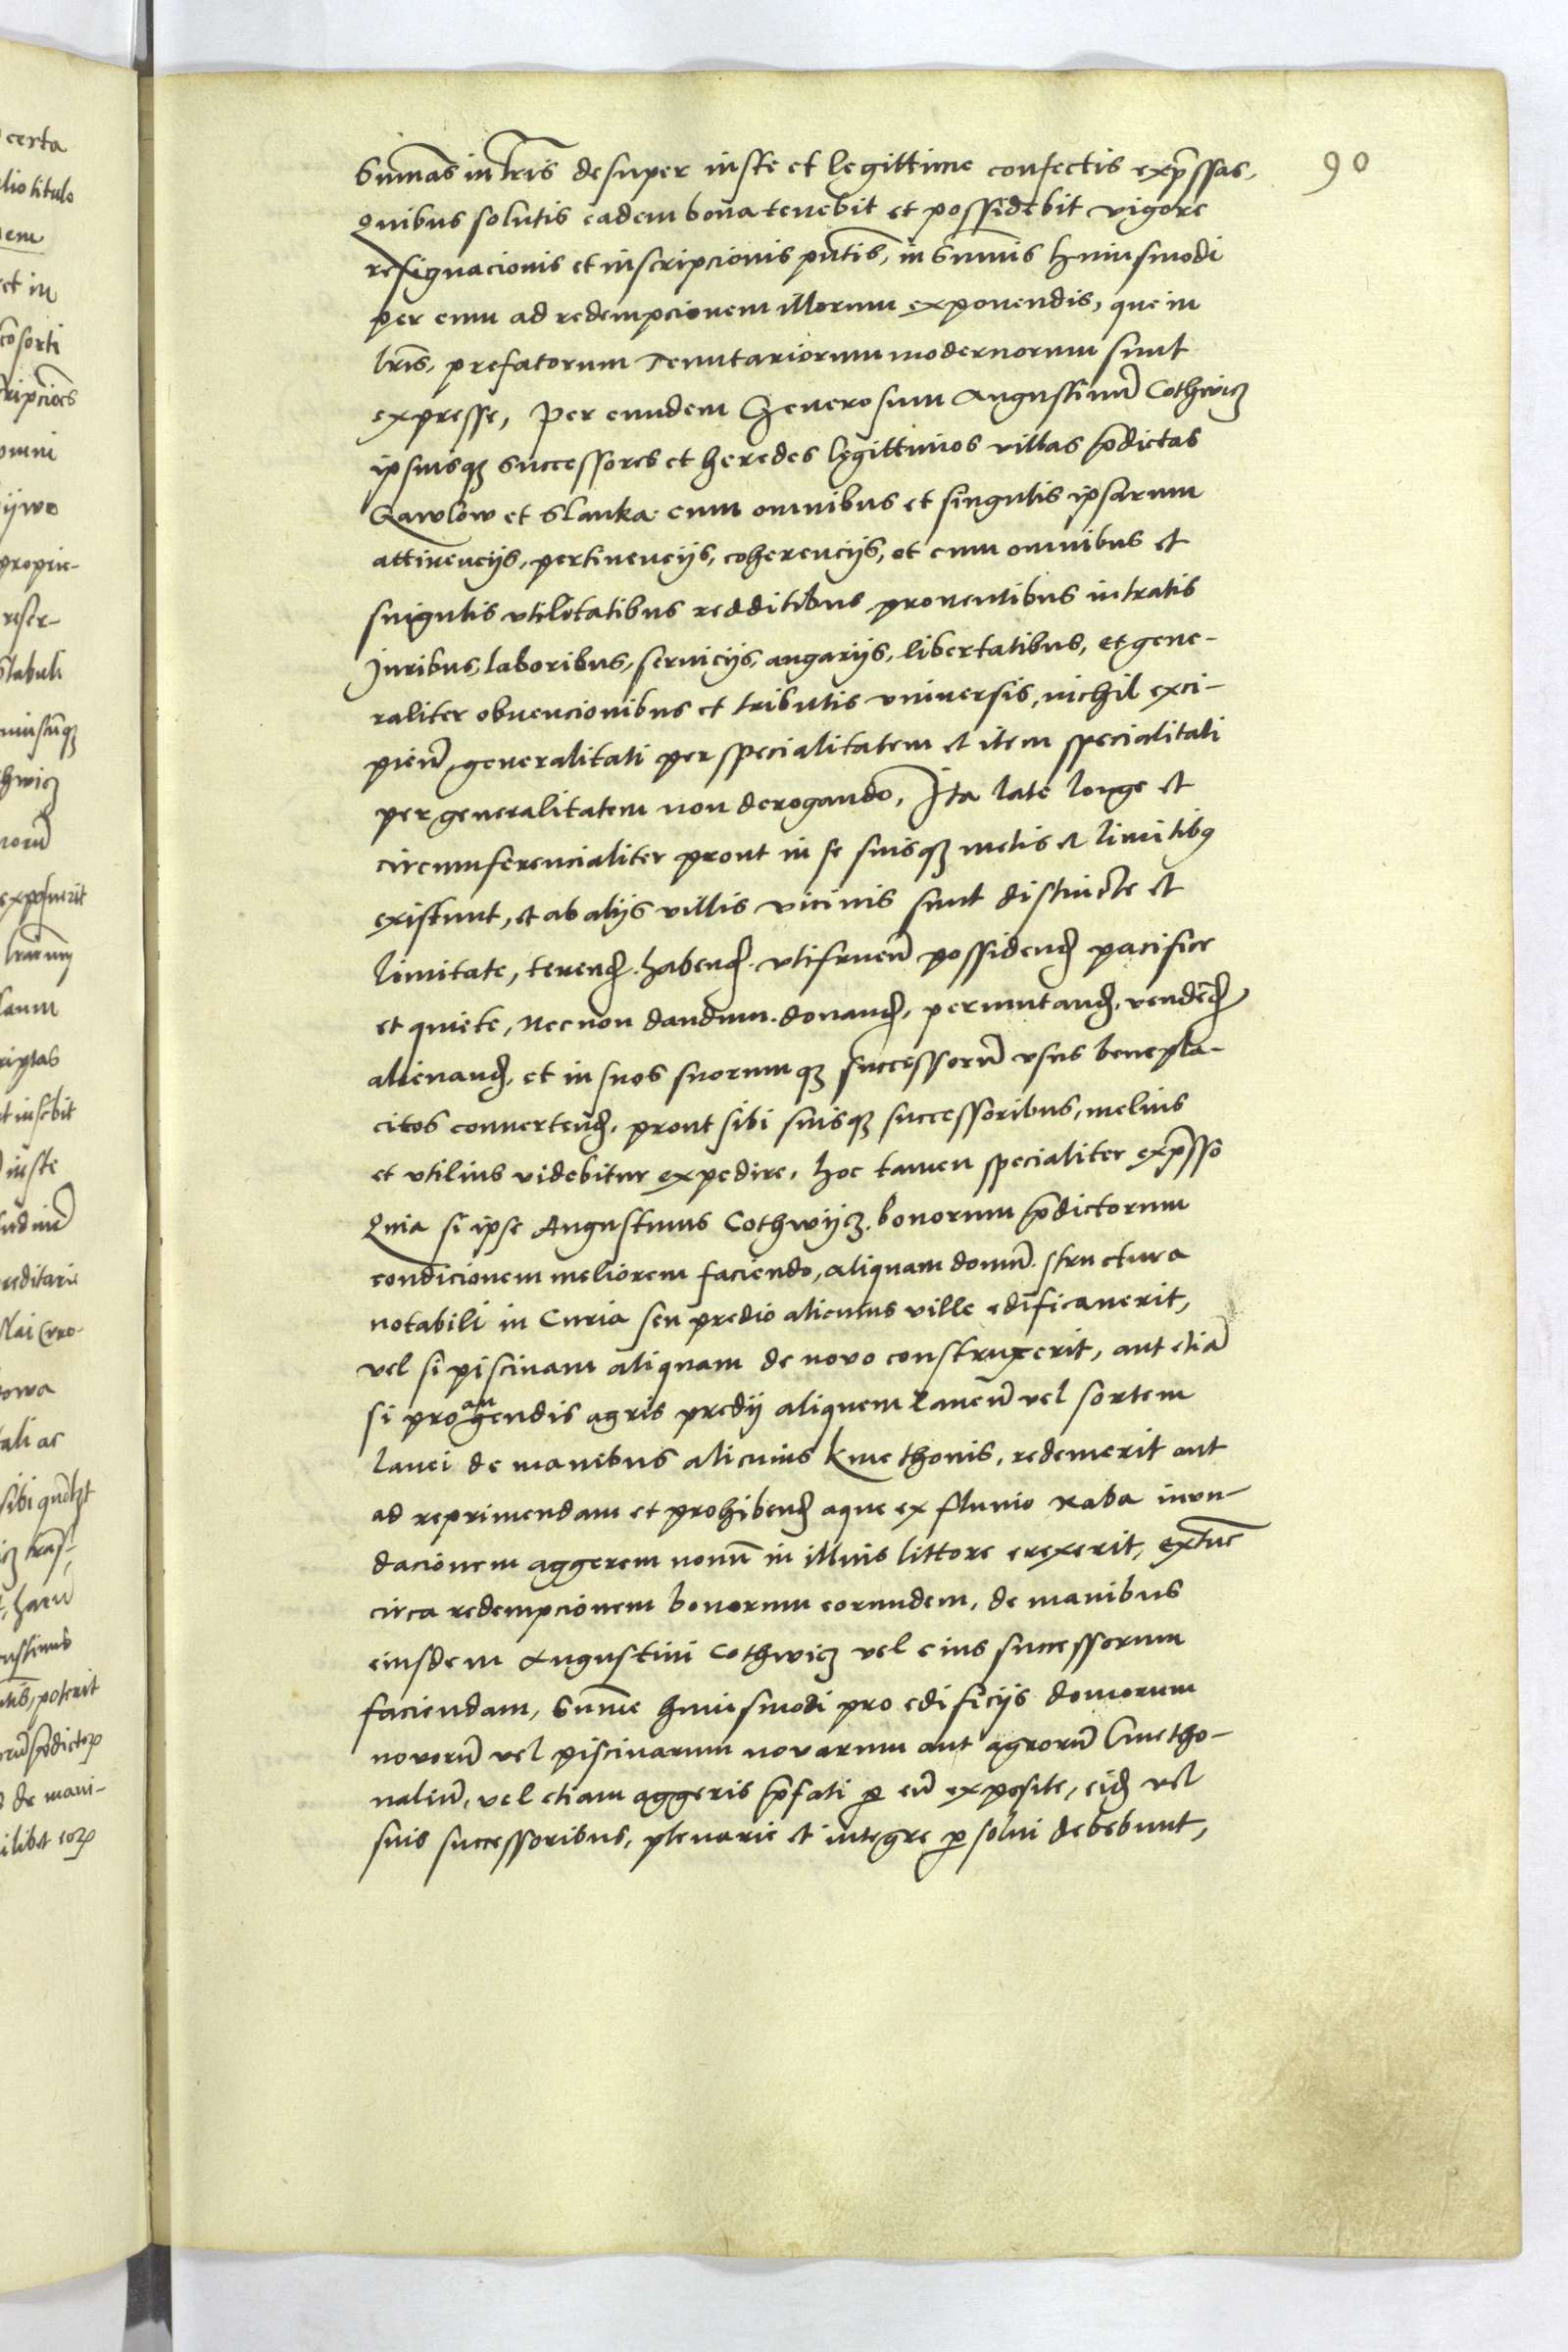 90
certa
lio titulo
dem
et in
cōsorti
ripcioēs
omni
ijwo
proprie-
reser-
Stabuli
niusūqꝫ
thwicꝫ
noruꝫ
exposuerit
lanm
riptas
t inscbit
iuste
reditarie
towa
tali ac
ustinus
poterit
s de mani-
ilibet eoꝝ
Sum̄as in lr̄is desuper iuste et legittime confectis exp̄ssas,
Quibus solutis eadem bona tenebit et possidebit vigore
resignacionis et inscripcionis pn̄tis, in Sum̄is huiusmodi
per eum ad redempcionem illorum exponendis, que in
lr̄is, prefatorum Tenutariorum modernorum sunt
expresse, Per eundem Generosum Augustinū Cothwicꝫ
ipsiusqꝫ successores et heredes legittimos villas p̄dictas
Gawlow et Slanka cum omnibus et singulis ipsarum
attinencijs, pertinencijs, coherencijs, et cum omnibus et
singulis vtilitatibus redditibus prouentibus intratis
Juribus, laboribus, seruicijs, angarijs, libertatibus, et gene-
raliter obuencionibus et tributis vniuersis, nichil exci-
pień, generalitati per specialitatem et item specialitati
per generalitatem non derogando, Ita late longe et
circumferencialiter prout in se suisqꝫ metis et limitibꝰ
existunt, et ab alijs villis vicinis sunt distincte et
limitate, tenenḍ. habenḍ. vtifrueń possidenḍ pacifice
et quiete, necnon dandum. donanḍ, permutanḍ, vendēḍ
alienanḍ, et in suos suorumqꝫ successorū vsus benepla-
citos conuertenḍ, prout sibi suisqꝫ successoribus, melius
et vtilius videbitur expedire, hoc tamen specialiter exp̄sso
Quia si ipse Augustinus Cothwijcꝫ. bonorum p̄dictorum
condicionem meliorem faciendo, aliquam domū. structura
notabili in Curia seu predio alicuius ville edificauerit,
vel si piscinam aliquam de nouo construxerit, aut etiā
si pro augendis agris predij aliquem laneū vel sortem
lanei de manibus alicuius kmethonis, redemerit aut
ad reprimendam et prohibenḍ aque ex fluuio Raba inun-
dacionem aggerem nouū in illius littore erexerit, extūc
circa redempcionem bonorum eorundem, de manibus
eiusdem Augustini Cothwicꝫ vel eius successorum
faciendam, Sum̄e huiusmodi pro edificijs domorum
nouorū vel piscinarum nouarum aut agrorū Cmetho-
naliū, vel etiam aggeris p̄fati ꝑ eū exposite, eiḍ vel
suis successoribus, plenarie et integre ꝑsolui debebunt,